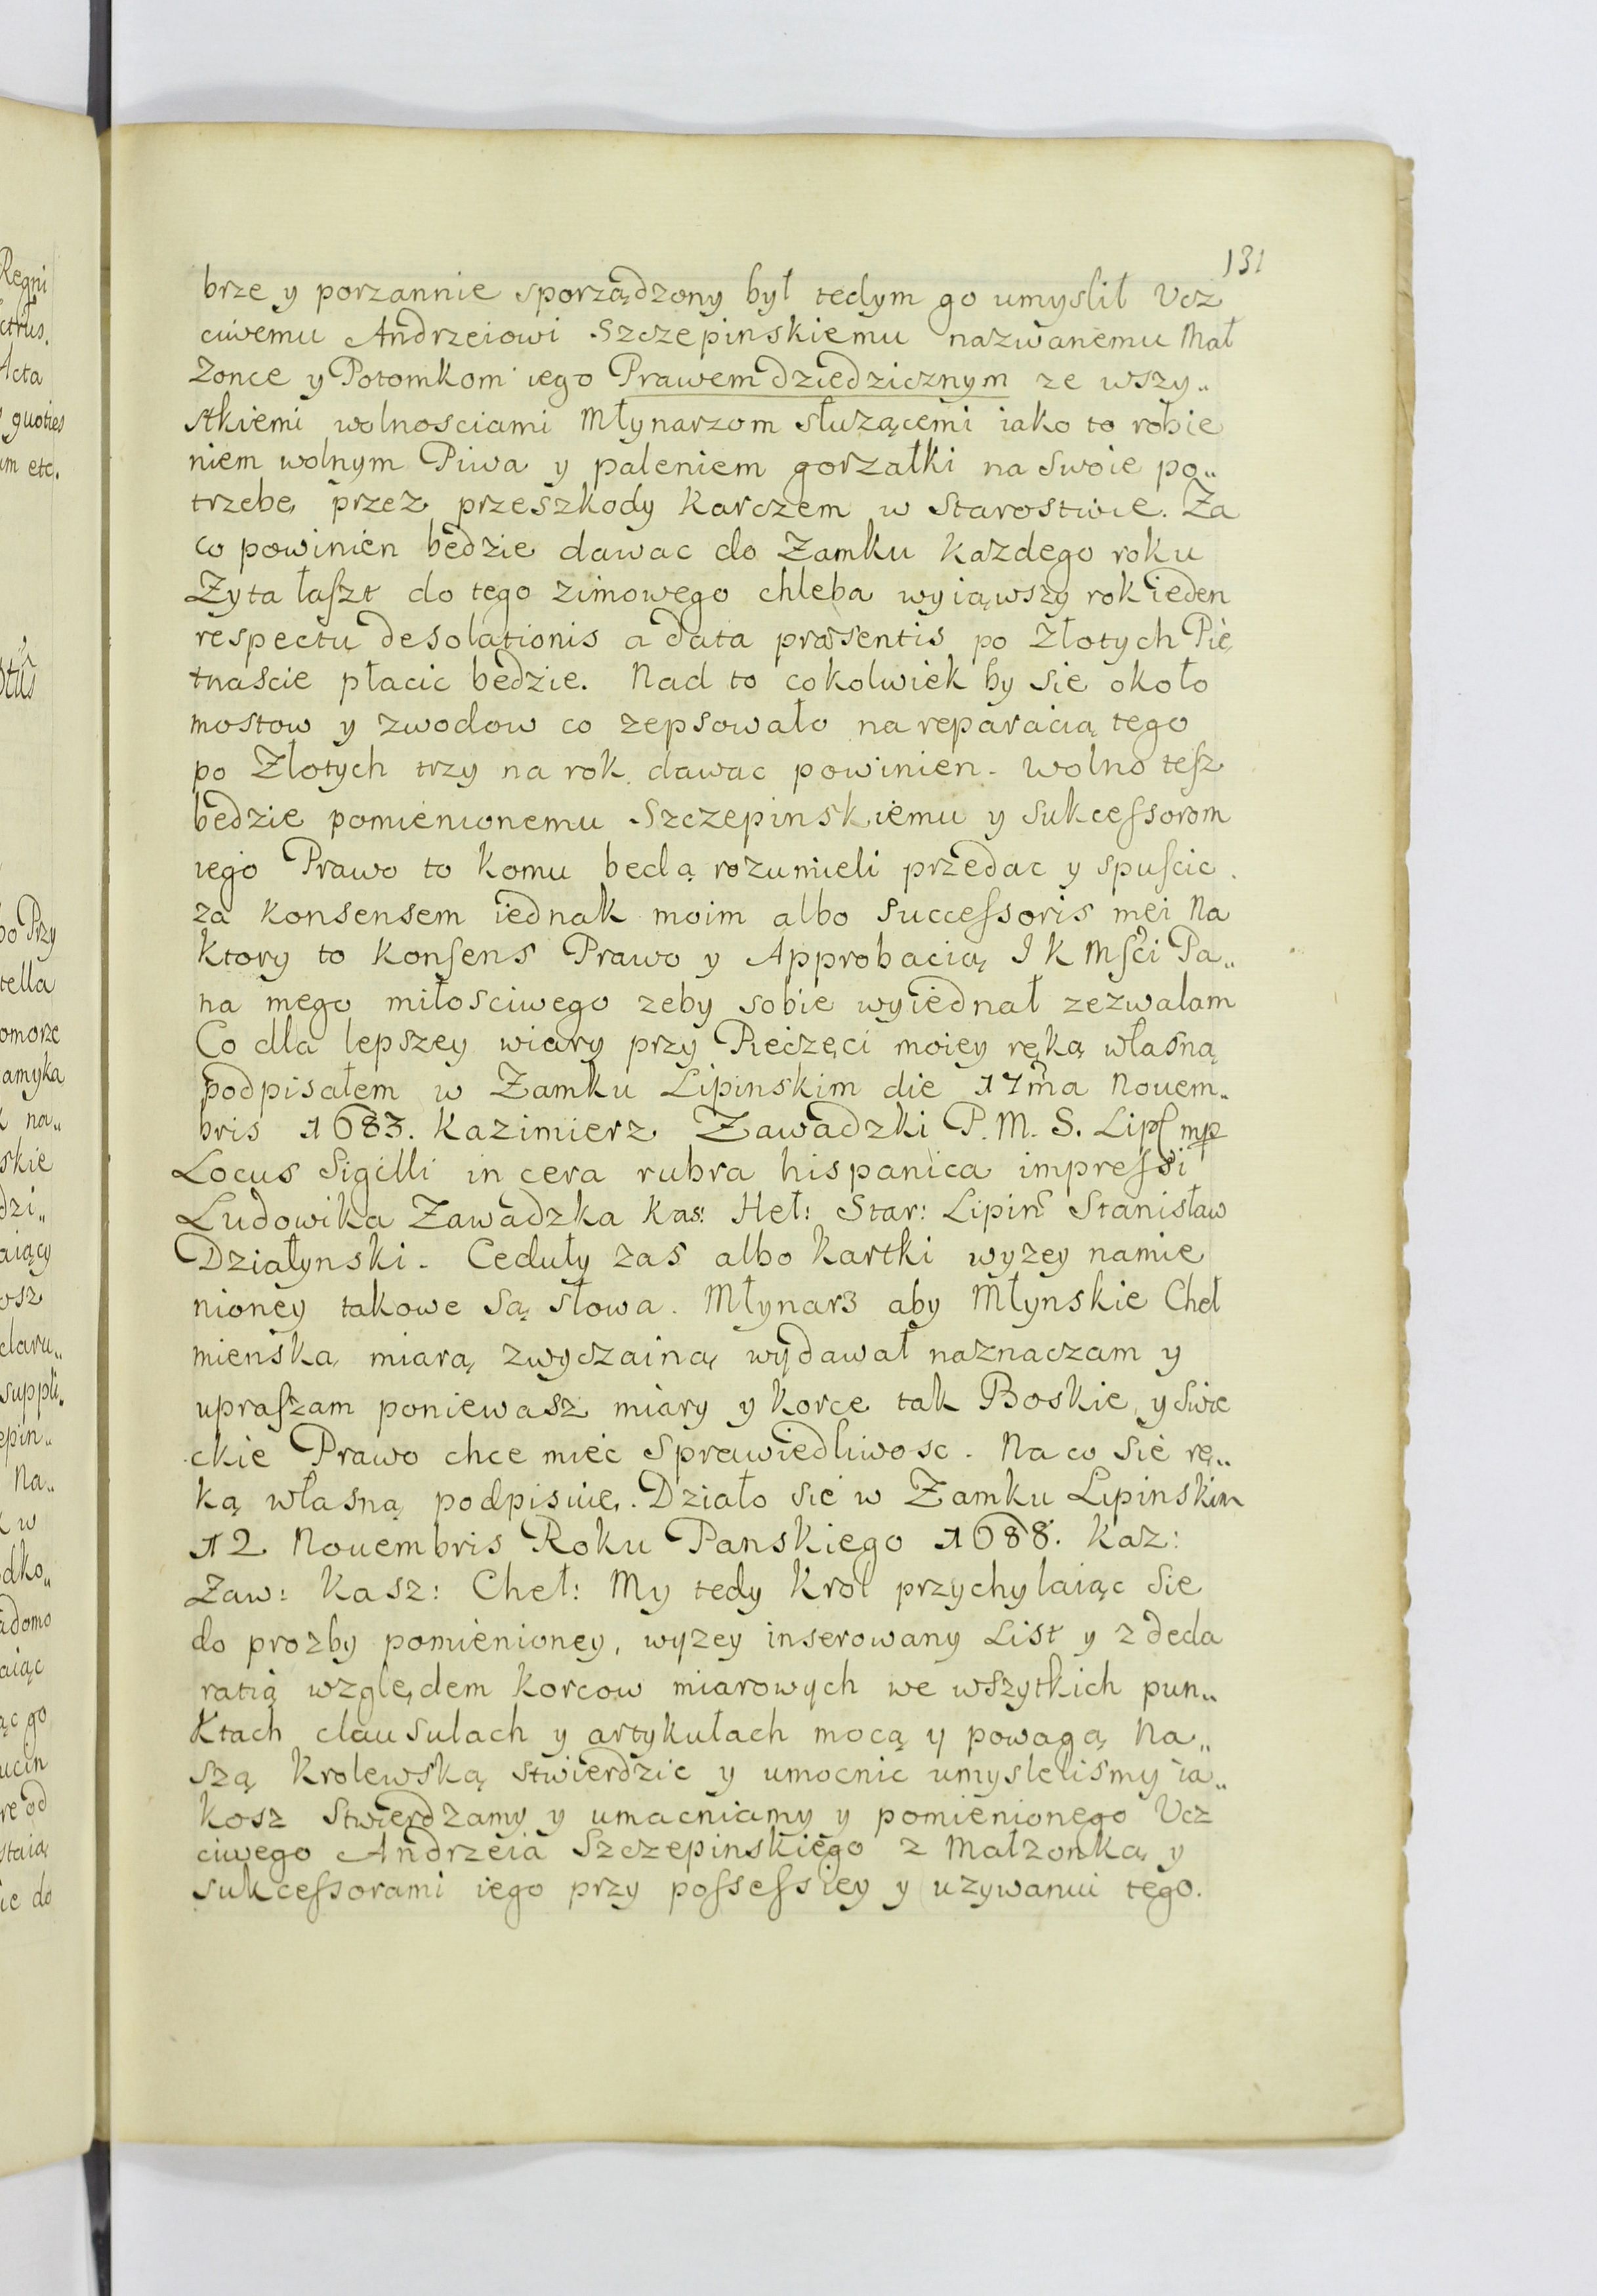 131
brze y porzannie sporządzony był tedym go umyslił Ucz
ciwemu Andrzeiowi Szczepinskiemu nazwanemu Mał
Zonce y Potomkom iego Prawem dziedzicznym ze wszy„
stkiemi wolnosciami Młynarzom służącemi iako to robie
niem wolnym Piwa y paleniem gorzałki na swoie po„
trzebę przez przeszkody Karczem w Starostwie. Za
co powinien będzie dawac do Zamku Każdego roku
Zyta łaszt do tego zimowego chleba wyiąwszy rok ieden
respectu desolationis a data præsentis po Złotych Pię
tnaście płacic będzie. Nad to cokolwiek by się około
mostow y zwodow co zepsowało na reparacią tego
po Złotych trzy na rok dawac powinien. Wolno tesz
będzie pomienionemu Szczepinskiemu y Sukcessorom
iego Prawo to Komu będą rozumieli przedac y spuscic
za Konsensem iednak moim albo Successoris mei Na
Ktory to Konsens Prawo y Approbacią J K Msci Pa„
na mego miłosciwego zeby sobie wyiednał zezwalam
Co dla lepszey wiary przy Pieczęci moiey ręką własną
podpisałem w Zamku Lipinskim die 17ma Nouem„
bris 1683. Kazimierz Zawadzki P. M. S. Lips mp
Locus Sigilli in cera rubra hispanica impressi
Ludowika Zawadzka Kas: Heł: Star: Lipin: Stanisław
Działynski. Ceduły zas albo Kartki wyzey namie
nioney takowe są słowa. Młynarz aby Młynskie Cheł
mienską miarą zwyczainą wydawał naznaczam y
upraszam poniewasz miary y Korce tak Boskie, y Swie
ckie Prawo chce miec Sprawiedliwosc. Na co się rę„
ką własną podpisuię. Działo się w Zamku Lipinskim
12 Nouembris Roku Panskiego 1688. Kaz:
Zaw: Kasz: Cheł: My tedy Krol przychylaiąc się
do prozby pomienioney, wyzey inserowany List y z decla
ratią względem Korcow miarowych we wszytkich pun„
Ktach clausulach y artykułach mocą y powagą Na„
szą Krolewską stwierdzic y umocnic umysleliśmy ia„
Kosz Stwierdzamy y umacniamy y pomienionego Ucz
ciwego Andrzeia Szczepinskiego z Małzonką y
sukcessorami iego przy possessiey y uzywaniu tego.